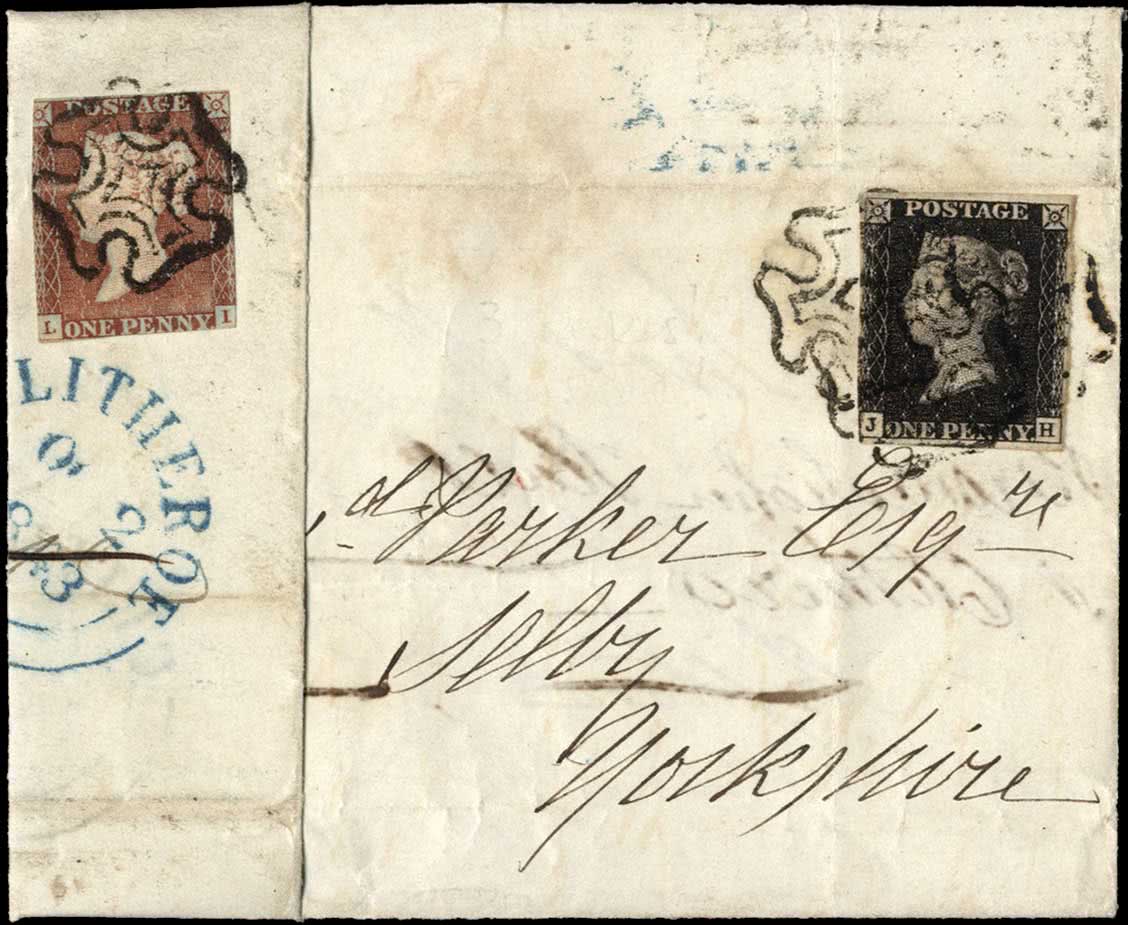 POSTAGE
L ONE PENNY I
LITHEROE
2
1843
POSTAGE
J ONE PENNY H
d Parker Esqre
Selby
Yorkshire